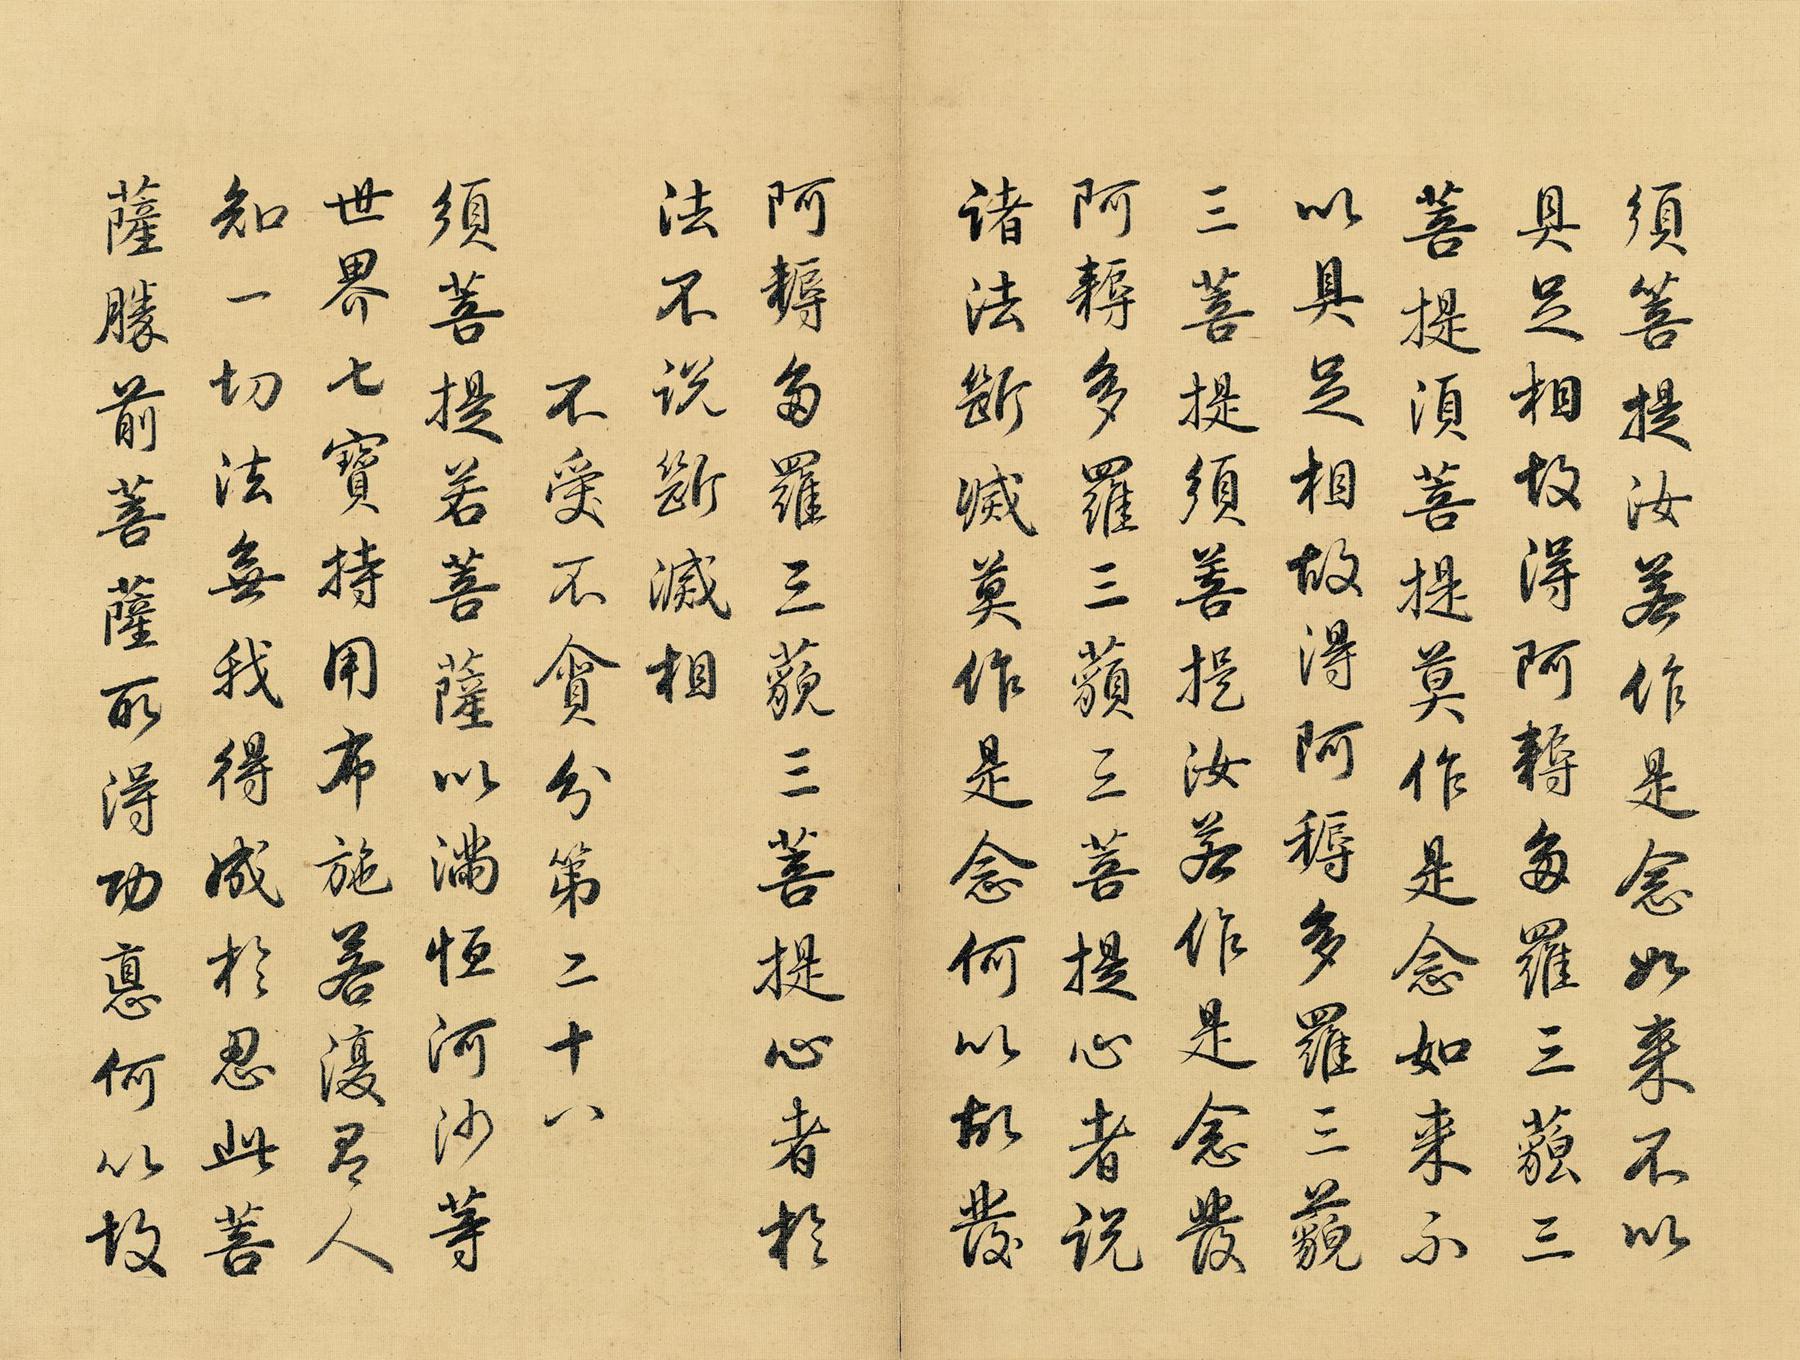 須菩提汝若作是念如来不以
具足相故得阿耨多羅三藐三
菩提須菩提莫作是念如来不
以具足相故得阿耨多羅三藐
三菩提須菩提汝若作是念發
阿耨多羅三藐三菩提心者说
诸法斷滅莫作是念何以故發
阿耨多羅三藐三菩提心者於
法不说斷滅相
不受不貪分第二十八
須菩提若菩薩以滿恒河沙等
世界七寶持用布施若復有人
知一切法無我得成於忍此菩
薩勝前菩薩所得功德何以故